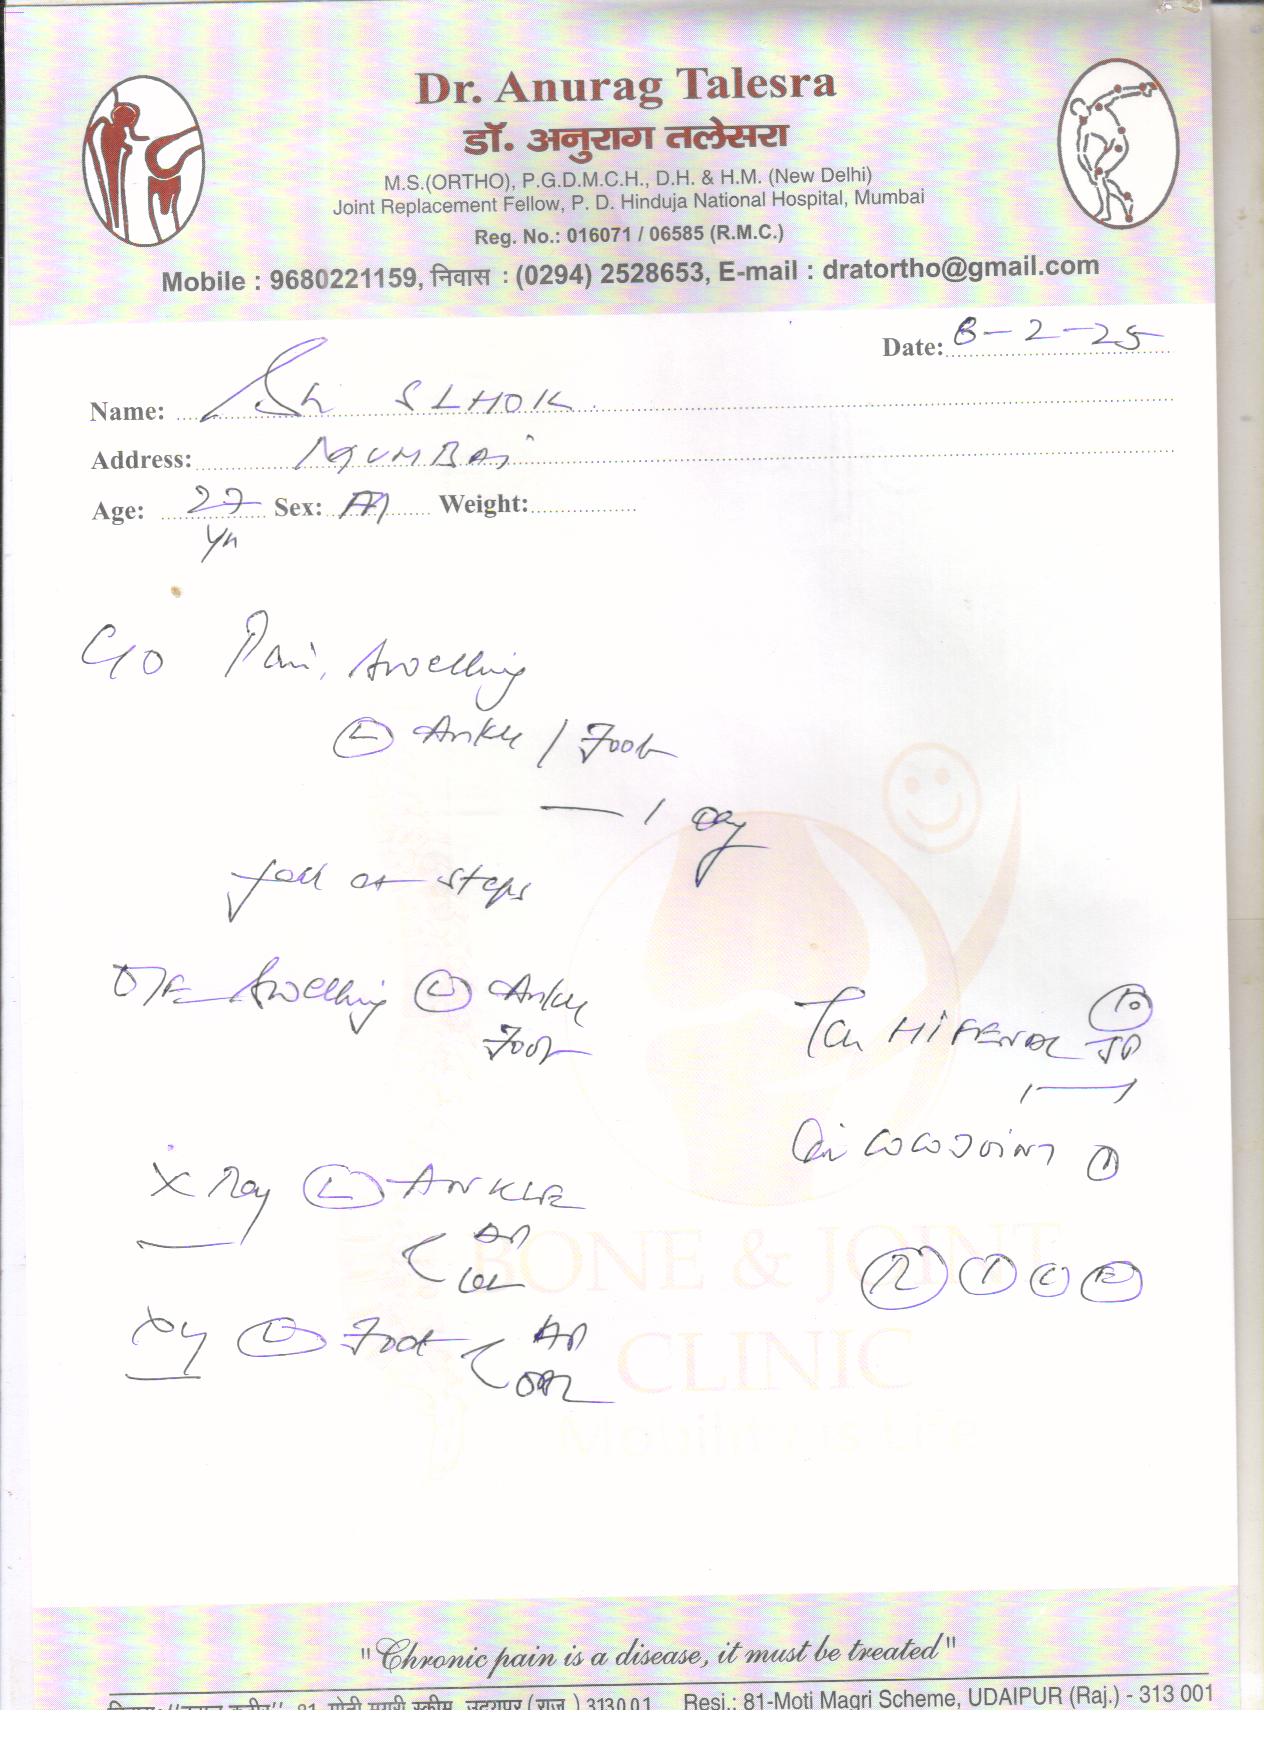 Dr. Anurag Talesra
डॉ. अनुराग तलेसरा
M.S.(ORTHO), P.G.D.M.C.H., D.H. & H.M. (New Delhi)
Joint Replacement Fellow, P. D. Hinduja National Hospital, Mumbai
Reg. No.: 016071 / 06585 (R.M.C.)
Mobile : 9680221159, निवास : (0294) 2528653, E-mail : dratortho@gmail.com
Date: 8-2-25
Name: Sh SLHOK
Address: MUMBAI
Age: 27 Sex: M Weight:
Yr
C/O Pain, Swelling
(L) Ankle / Foot
— 1 Day
fall at steps
O/E Swelling (L) Ankle
Foot
Tab HIFENAC
X Ray (L) ANKLE
AP
Lat
Xray (L) Foot
AP
R I C E
BONE & JOINT
CLINIC
Mobility is Life
"Chronic pain is a disease, it must be treated"
Resi.: 81-Moti Magri Scheme, UDAIPUR (Raj.) - 313 001